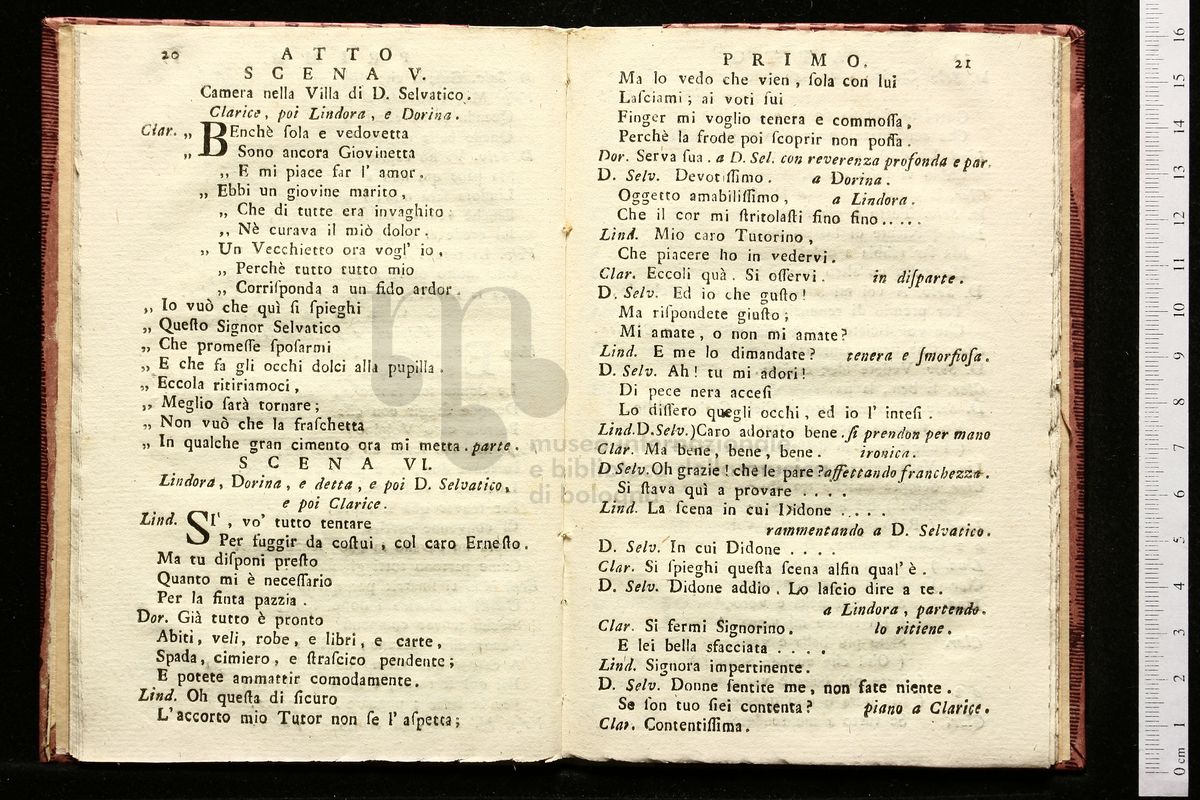 20
ATTO
SCENA V.
Camera nella Villa di D. Selvatico.
Clarice, poi Lindora, e Dorina.
Clar. „ BEnchè ſola e vedovetta
„ Sono ancora Giovinetta
„ E mi piace far l' amor.
„ Ebbi un giovine marito,
„ Che di tutte era invaghito
„ Nè curava il miò dolor.
„ Un Vecchietto ora vogl' io,
„ Perchè tutto tutto mio
„ Corriſponda a un fido ardor.
„ Io vuò che quì ſi ſpieghi
„ Queſto Signor Selvatico
„ Che promeſſe ſpoſarmi
„ E che fa gli occhi dolci alla pupilla.
„ Eccola ritiriamoci,
„ Meglio ſarà tornare;
„ Non vuò che la fraſchetta
„ In qualche gran cimento ora mi metta. parte.
SCENA VI.
Lindora, Dorina, e detta, e poi D. Selvatico,
e poi Clarice.
Lind. SI', vo' tutto tentare
Per fuggir da coſtui, col caro Erneſto.
Ma tu diſponi preſto
Quanto mi è neceſſario
Per la finta pazzia.
Dor. Già tutto è pronto
Abiti, veli, robe, e libri, e carte,
Spada, cimiero, e ſtraſcico pendente;
E potete ammattir comodamente.
Lind. Oh queſta di ſicuro
L'accorto mio Tutor non ſe l' aſpetta;
PRIMO.
21
Ma lo vedo che vien, ſola con lui
Laſciami; ai voti ſui
Finger mi voglio tenera e commoſſa,
Perchè la frode poi ſcoprir non poſſa.
Dor. Serva ſua. a D. Sel. con reverenza profonda e par.
D. Selv. Devotiſſimo. a Dorina.
Oggetto amabiliſſimo, a Lindora.
Che il cor mi ſtritolaſti fino fino.....
Lind. Mio caro Tutorino,
Che piacere ho in vedervi.
Clar. Eccoli quà. Si oſſervi. in diſparte.
D. Selv. Ed io che guſto!
Ma riſpondete giuſto;
Mi amate, o non mi amate?
Lind. E me lo dimandate? tenera e ſmorfioſa.
D. Selv. Ah! tu mi adori!
Di pece nera acceſi
Lo diſſero quegli occhi, ed io l' inteſi.
Lind.D.Selv.)Caro adorato bene. ſi prendon per mano
Clar. Ma bene, bene, bene. ironica.
D Selv. Oh grazie! che le pare? affettando franchezza.
Si ſtava quì a provare ....
Lind. La ſcena in cui Didone ....
rammentando a D. Selvatico.
D. Selv. In cui Didone ....
Clar. Si ſpieghi queſta ſcena alfin qual' è.
D. Selv. Didone addio. Lo laſcio dire a te.
a Lindora, partendo.
Clar. Si fermi Signorino. lo ritiene.
E lei bella sfacciata ....
Lind. Signora impertinente.
D. Selv. Donne ſentite me, non fate niente.
Se ſon tuo ſiei contenta? piano a Clarice.
Clar. Contentiſſima.
museo internazionale
e bibl
di bologna
0 cm 1 2 3 4 5 6 7 8 9 10 11 12 13 14 15 16